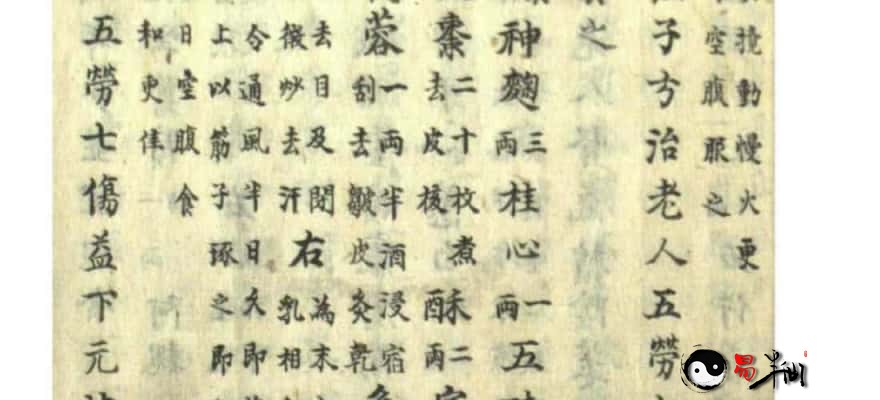 撓動慢火更
空腹服之
子方治老人五勞
神麹三兩桂心一兩五
棗二十枚煮
去皮核
蓉一兩半酒浸宿
刮去皺皮炙乾
去目及閉
微炒去汗
右為末
乳相
令通風半日久即
上以筋子琢之即
日空腹食
和更佳
五勞七傷益下元
易半仙